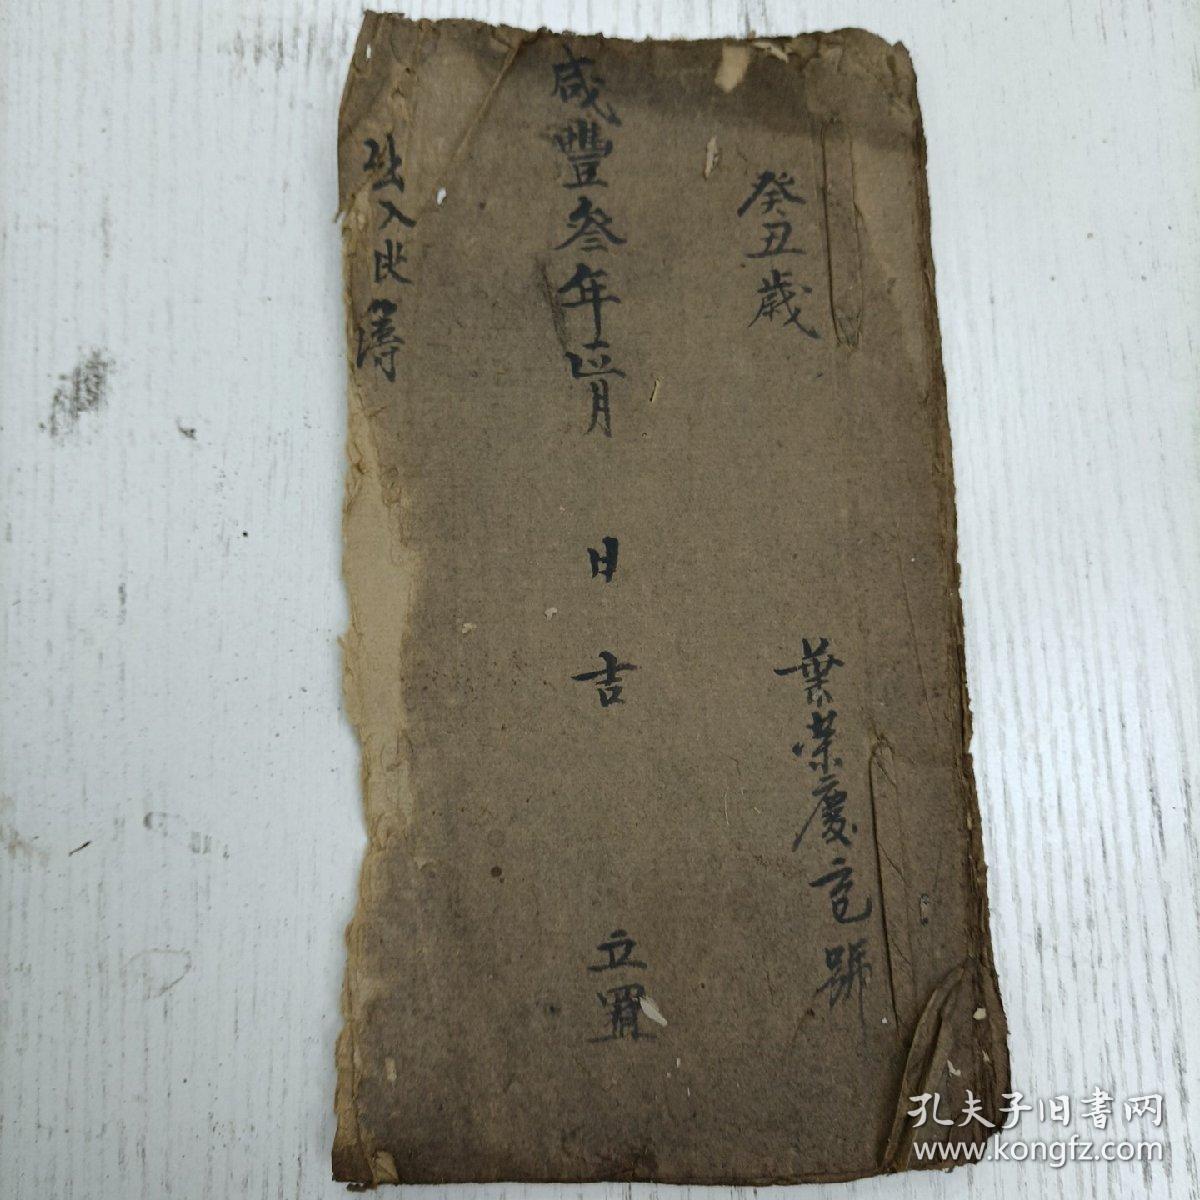 癸丑歲
葉榮慶宅號
咸豐叁年正月 日吉 立置
出入比簿
孔夫子旧書网
www.kongfz.com